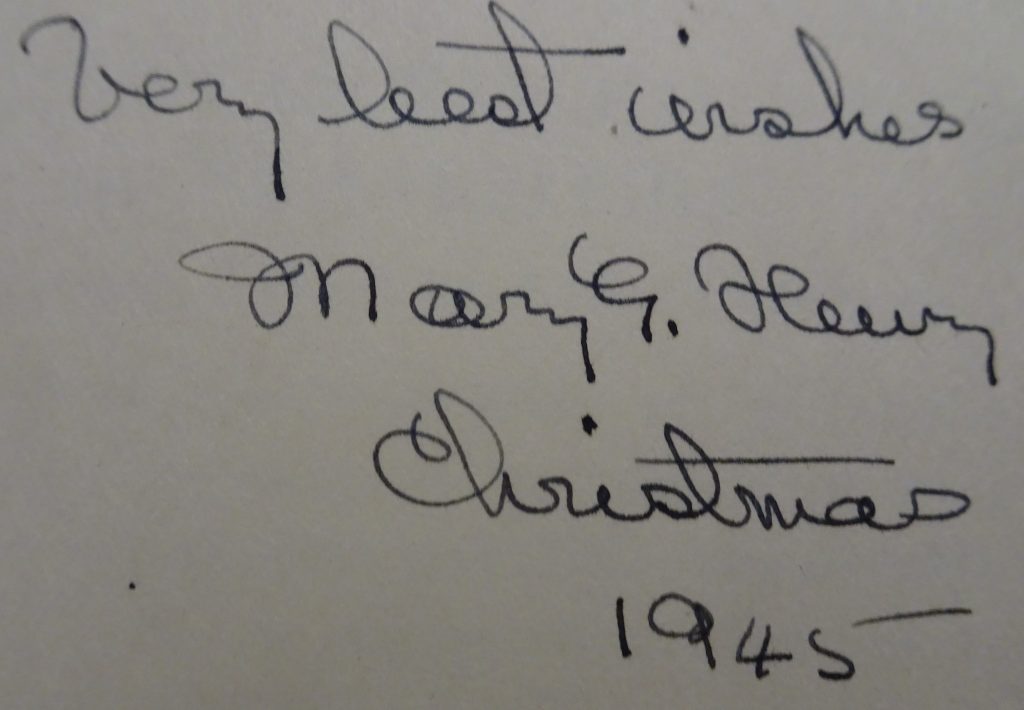 Very best wishes
Mary G. Henry
Christmas
1945